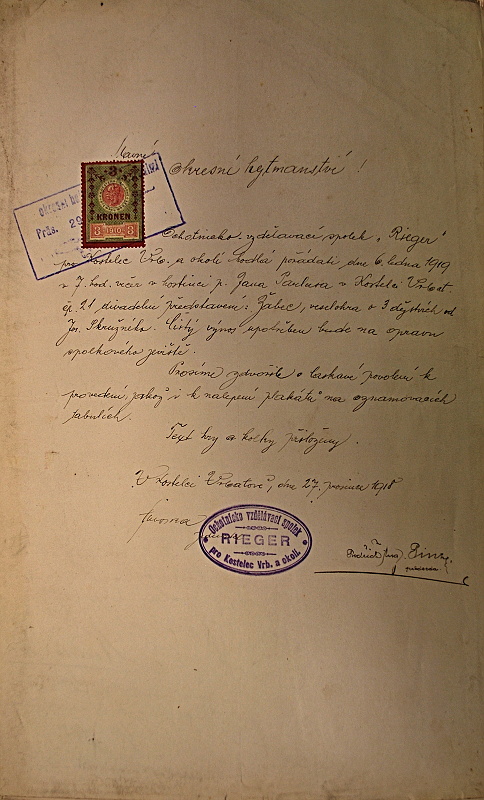 Slavné
okresní hejtmanství!
okresní
Präs. 29
3
KRONEN
3 1910 3
Ochotnicko vzdělávací spolek „Rieger"
pro Kostelec Vrb. a okolí hodlá pořádati dne 6. ledna 1919
v 7. hod. več. v hostinci p. Jana Paulusa v Kostelci Vrbat
čp. 21 divadelní představení: Žabec, veselohra o 3 dějstvích od
Jos. Skružného. Čistý výnos upotřeben bude na opravu
spolkového jeviště.
Prosíme zdvořile o laskavé povolení k
provedení, jakož i k nalepení plakátů na oznamovacích
tabulích.
Text hry a kolky přiloženy.
V Kostelci Vrbatově, dne 27. prosince 1918
Ochotnicko vzdělávací spolek
RIEGER
pro Kostelec Vrb. a okolí.
předseda